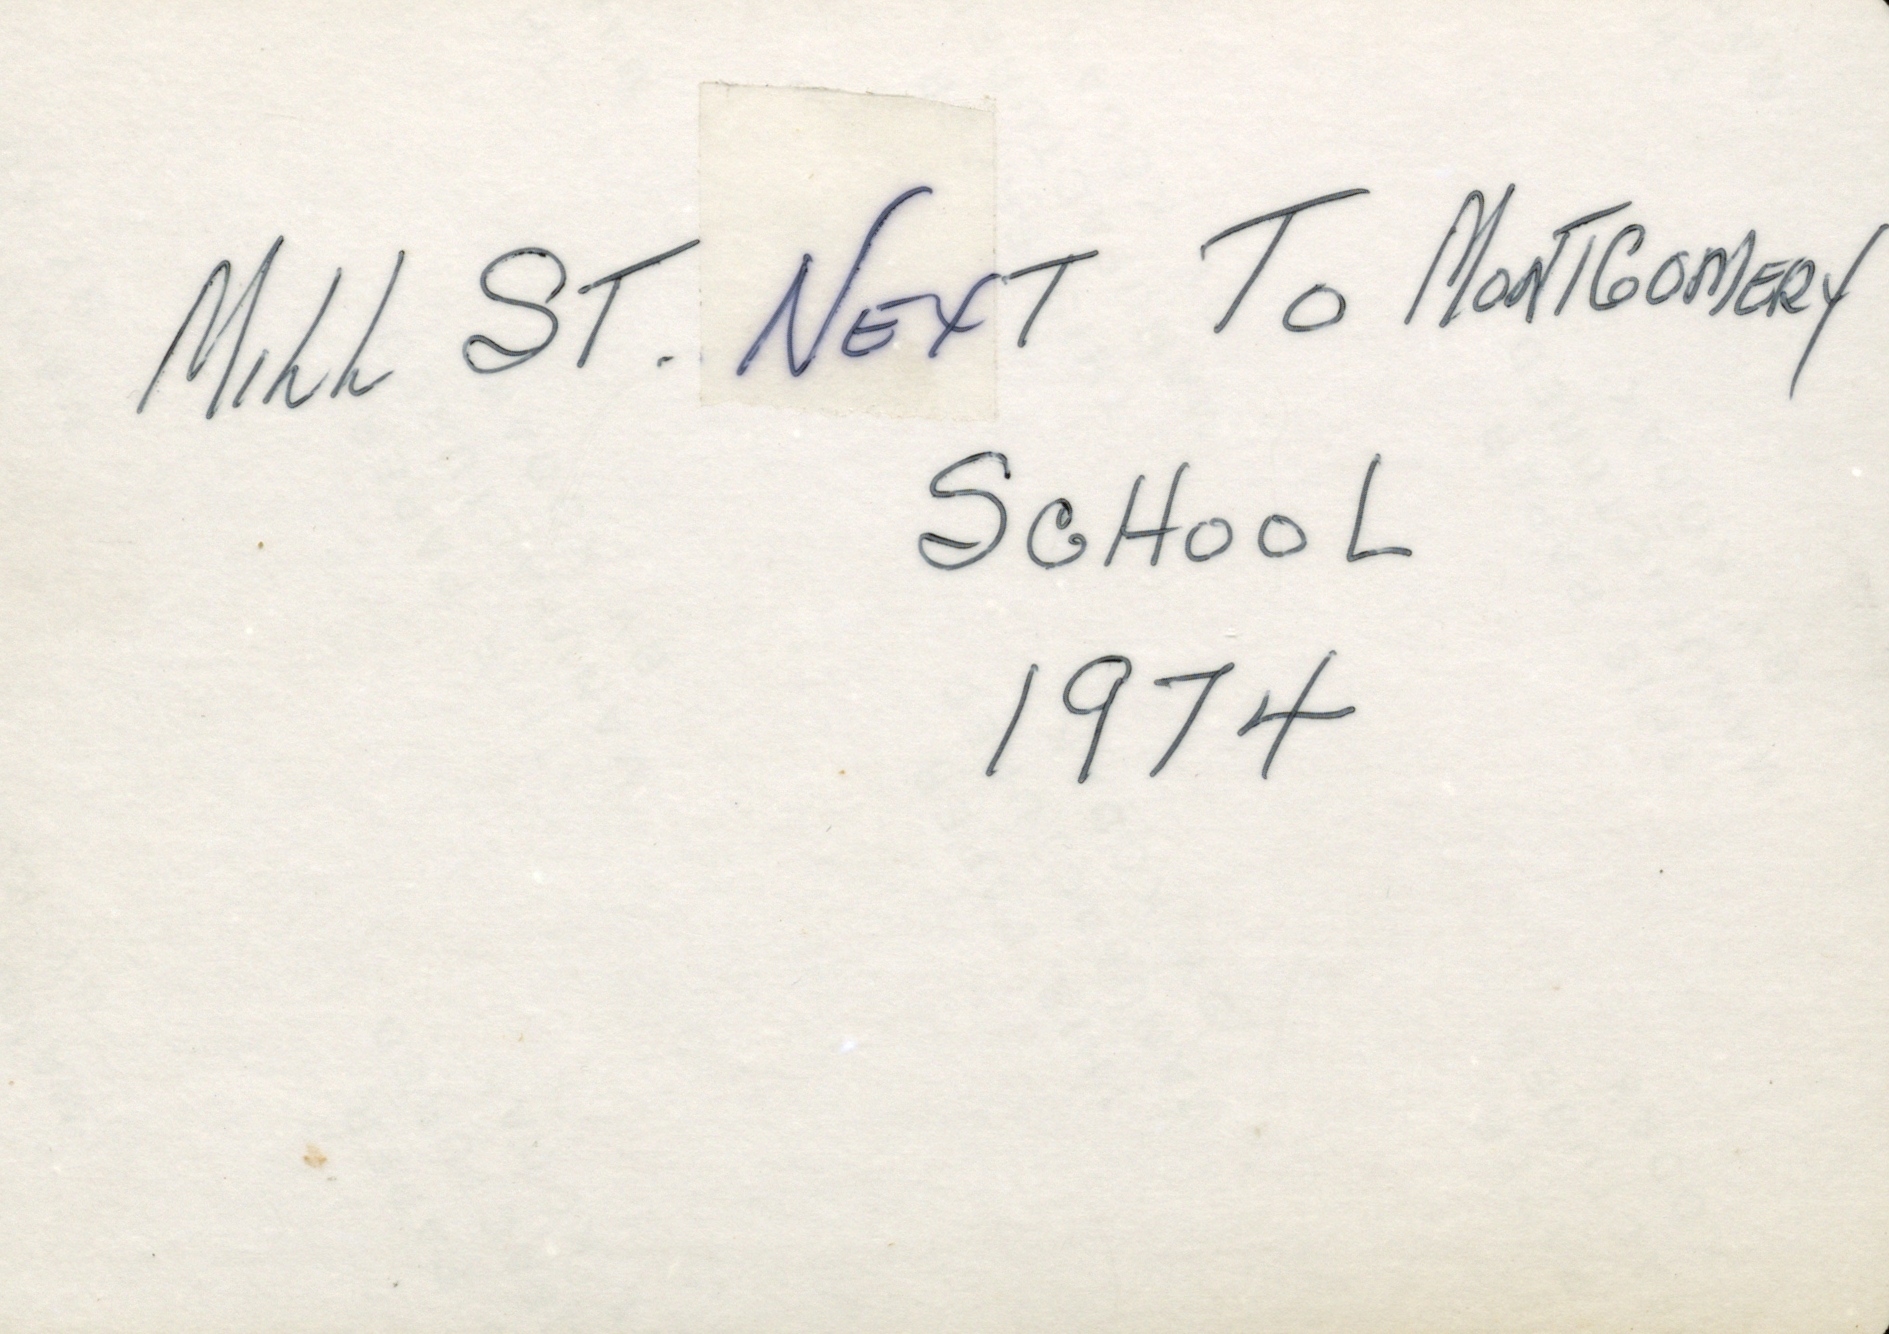 MILL ST. NEXT TO MONTGOMERY
SCHOOL
1974